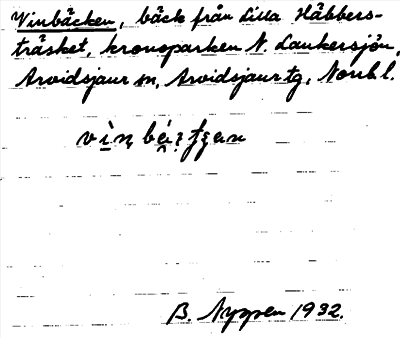 Vinbäcken, bäck från Lilla Häbbers-
träsket, kronoparken N. Laukersjön,
Arvidsjaur sn, Arvidsjaur tg, Norrb. l.
B. Nyppen 1932.